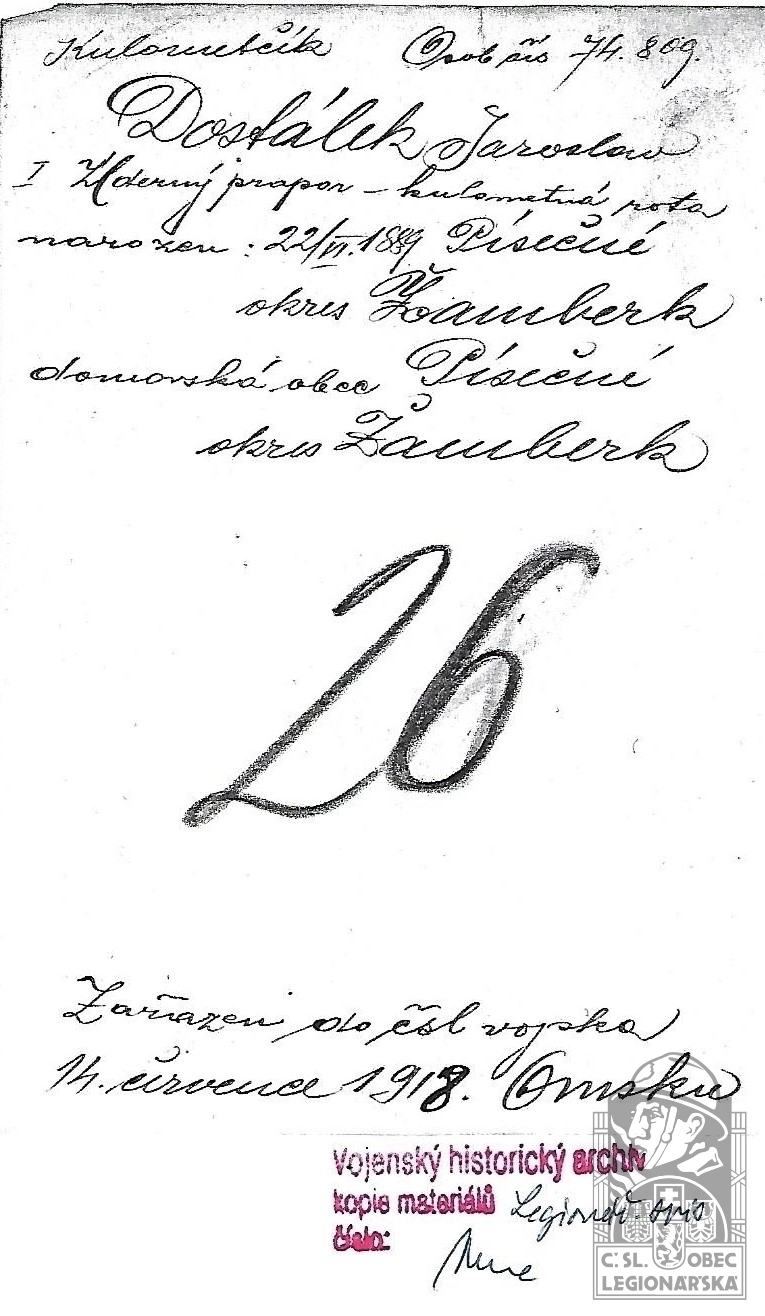 Kulometčík Osob čís 74.809.
Dostálek Jaroslav
I Úderný prapor – kulometná rota
narozen : 22/VI.1889 Písečné
okres Žamberk
domovská obec Písečné
okres Žamberk
26
Zařazen do čsl vojska
14. července 1918. Omsku
Vojenský historický archiv
kopie materiálů Legionář. spis
číslo:
Č.SL. OBEC
LEGIONÁŘSKÁ